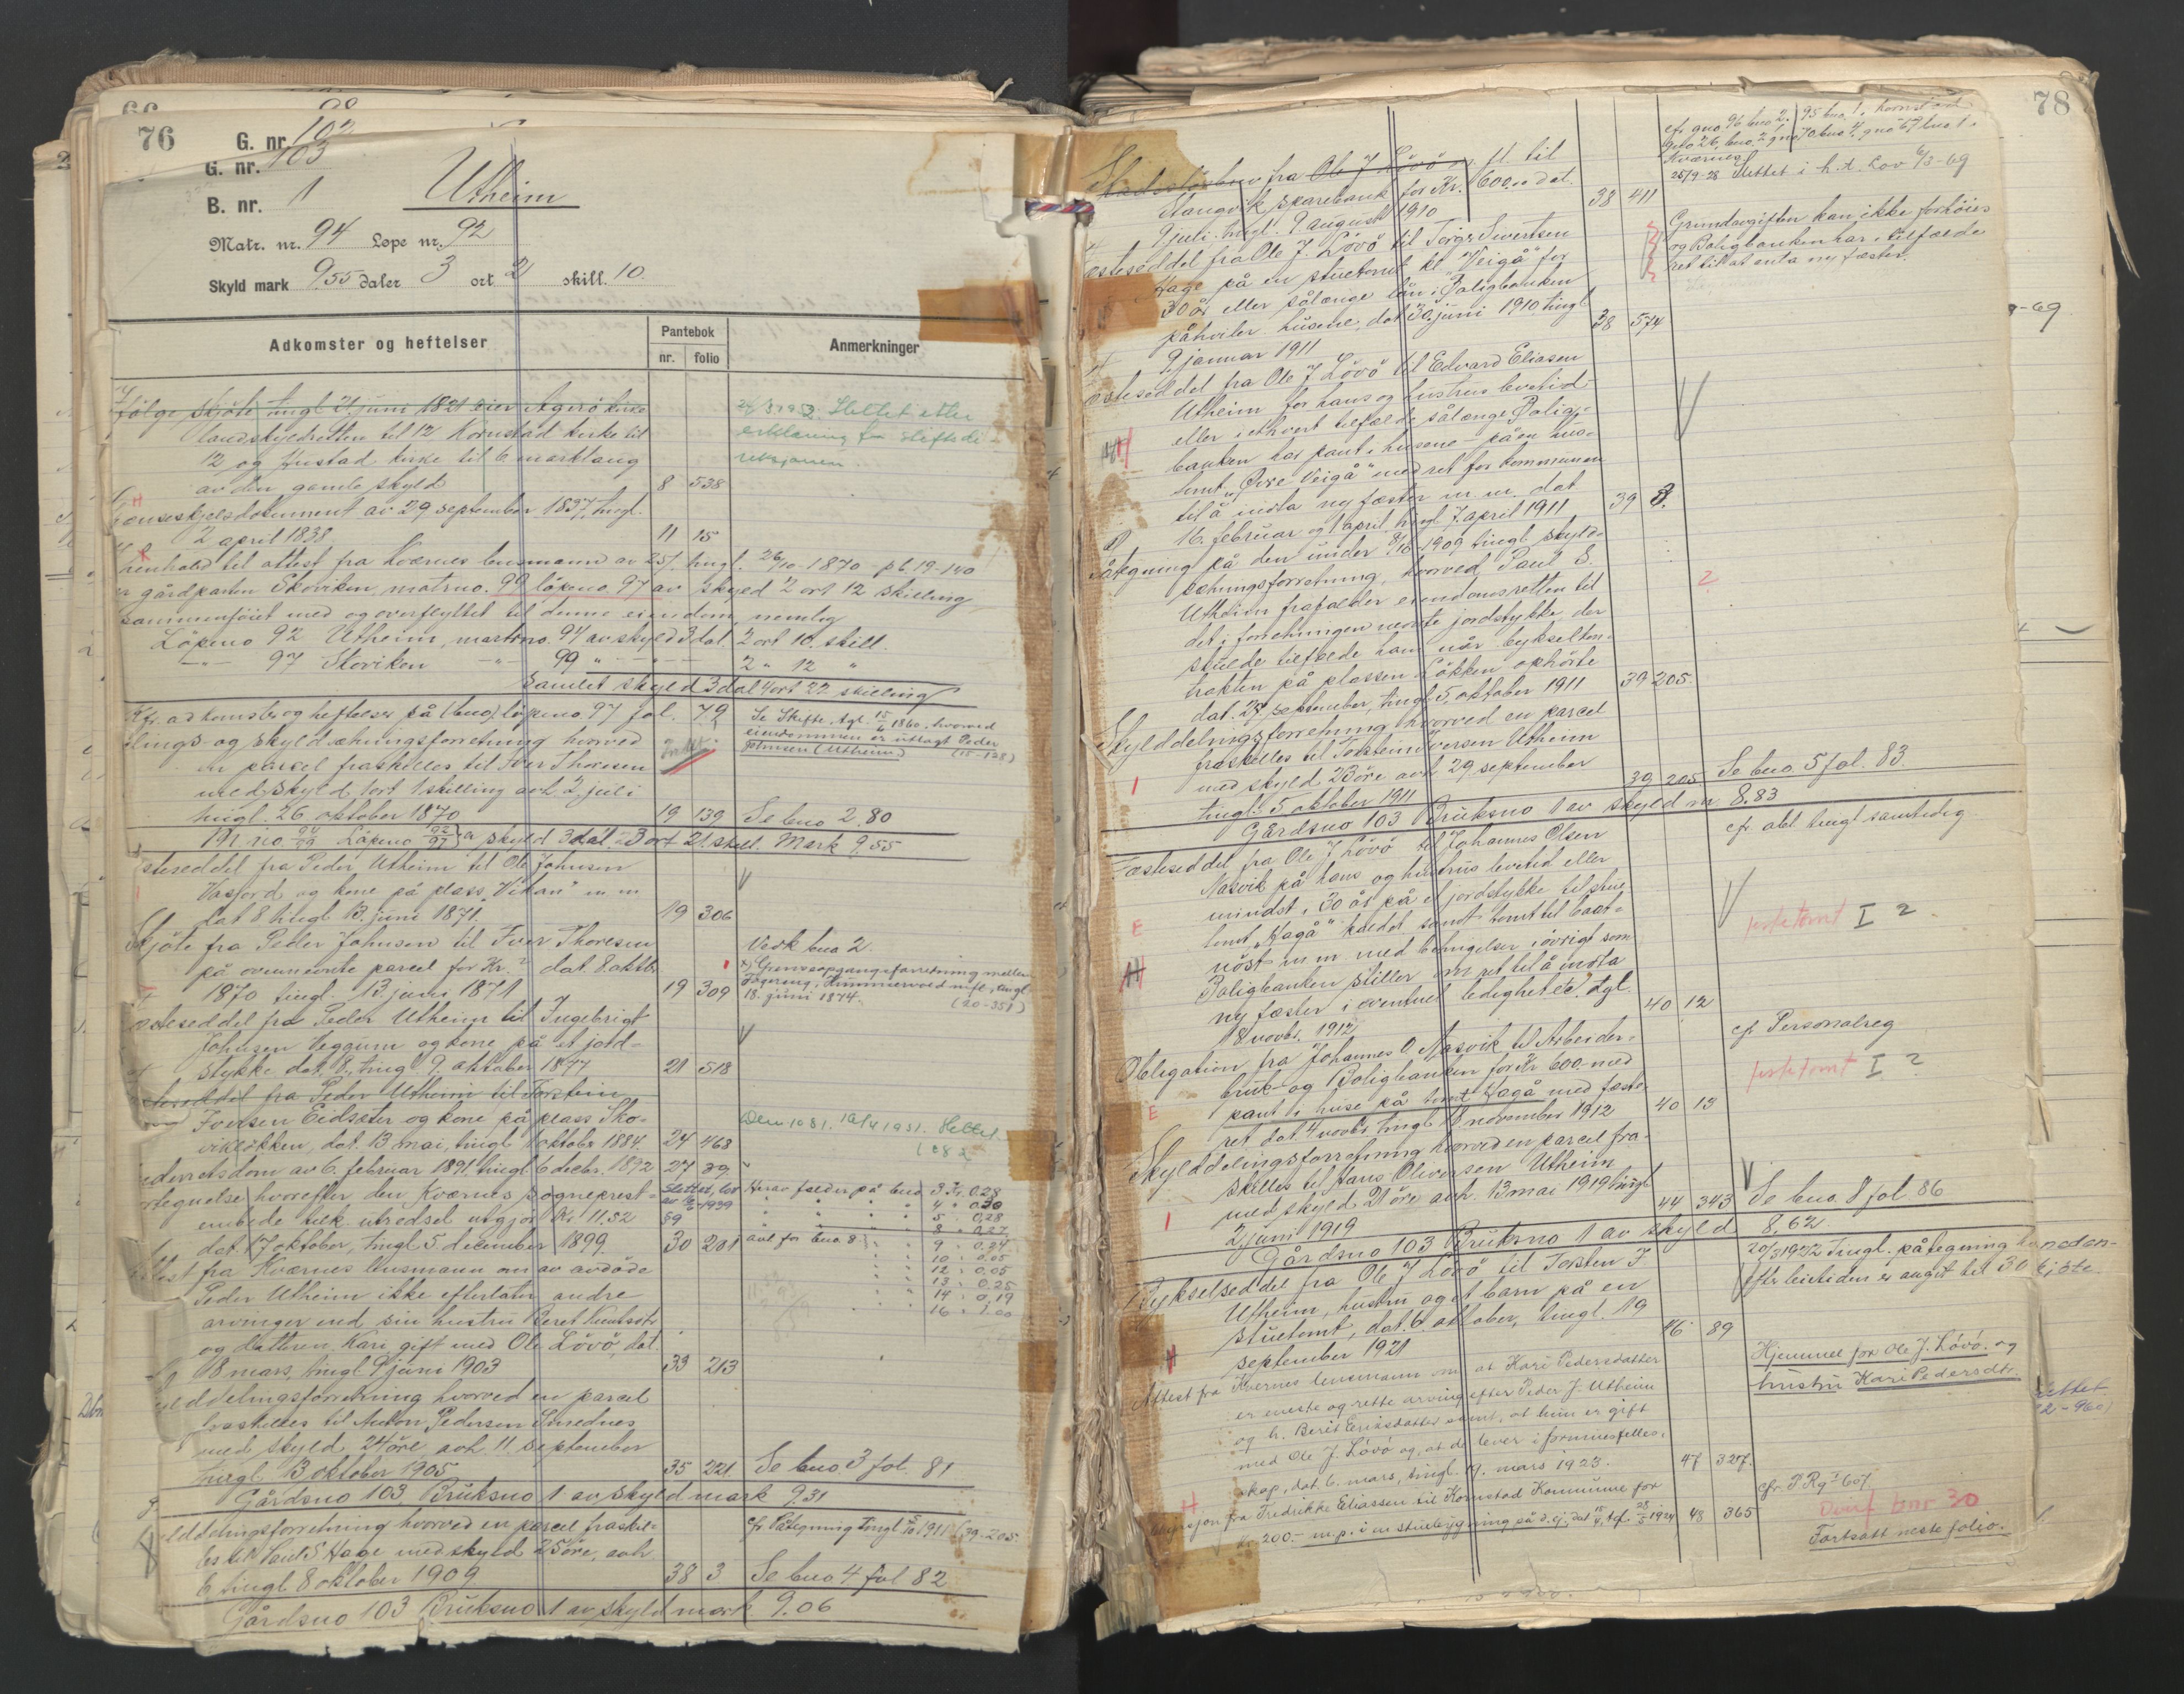 76
G. nr. 102
G. nr. 103
B. nr. 1 Utheim
Matr. nr. 94 Løpe nr. 92
Skyld mark 9.55 daler 3 ort 2 skill. 10.
Adkomster og heftelser
Pantebok
nr. folio
Anmerkninger
følge skjøte tingl. 21 juni 1821 eier Agerö kirke
landskyldretten til 12 Kornstad kirke til
12 og Hustad kirke til 6 marklaug
av den gamle skyld 8 538
24/3 1952 Slettet etter
erklæring fra stiftsdi-
reksjonen.
dokument av 29 september 1837, tingl.
2 april 1838 11 15
henhold til attest fra Kværnes lensmann av 25/ tingl. 26/10-1870 - pb. 19-140
er gårdparten Skoviken, matrno. 99 löpeno. 97 av skyld 2 ort 12 skilling
sammenföiet med og overflyttet til denne eiendom, nemlig
Löpeno 92 Utheim, matrno. 94 av skyld 3 dal. 2 ort 10. skill.
-"- 97 Skoviken -"- 99 " -"- 2 " 12 "
Samlet skyld 3 dal 4 ort 22 skilling
Kfr. adkomster og heftelser på (bno) löpeno 97 fol. 79
Se Skifte, tgl. 15/6 1860, hvorved
eiendommen er utlagt Peder
Johnsen (Utheim) (15-128)
delings- og skyldsætningsforretning hvorved
en parcel fraskilles til Iver Thoresen
med skyld 1 ort 1 skilling avh. 2 juli
tingl. 26 oktober 1870 19 139 Se bno 2. 80
M. no 94/99 Löpeno 92/97 av skyld 3 dal. 3 ort 21. skill. Mark 9.55
Festeseddel fra Peder Utheim til Ole Johnsen
Vasfjord og kone på plass "Vikan" m m
dat 8 tingl 13. juni 1871. 19 306
Skjöte fra Peder Johnsen til Iver Thoresen
på ovennevnte parcel for Kr. ? dat. 8 oktbr
1870 tingl. 13. juni 1871 19 309
Vedk bno 2
x) Grenseopgangsforretning mellem
18. juni 1874. (20-351)
Festeseddel fra Peder Utheim til Ingebrigt
Johnsen Veggum og kone på et jord-
stykke dat. 8., tingl. 9. oktober 1877 21 518
Festeseddel fra Peder Utheim til Torstein
Iversen Eidsæter og kone på plass Sko-
vikløkken, dat. 13 mai, tingl. oktobr 1884 24 468
Underretsdom av 6. februar 1891, tingl. 6 decbr. 1892 27 39
hvorefter den Kværnes sogneprest-
embede tilk. utredsel utgjör Kr 11.52
dat. 17 oktober, tingl. 5. december 1899. 30 201
Herav falder på bno 3 Kr. 0.28
" " " 4 " 0.30
" " " 5 " 0.28
8 " 0.27
9 " 0.24
10 " 0.05
12 " 0.05
13 " 0.25
14 " 0.19
16 " 1.00
avl for bno 8
Attest fra Kværnes lensmann om av avdöde
Peder Utheim ikke efterlater andre
arvinger end sin hustru Beret Knutsdtr
og datteren Kari gift med Ole Lövö, dat.
18 mars, tingl. 9 juni 1903 33 213
Skylddelingsforretning hvorved en parcel
fraskilles til Anton Pedersen Smednes
med skyld 24 öre avh. 11 september
tingl. 13 oktober 1905 35 221. Se bno 3 fol. 81
Gårdsno 103 Bruksno 1 av skyld mark 9.31
Skylddelingsforretning hvorved en parcel fraskil-
les til Paul S Hage med skyld 25 öre, avh.
6 tingl 8 oktober 1909 38 3 Se bno 4 fol 82
cfr. Påtegning tingl 5/10 1911 (39-205.
Gårdsno 103 Bruksno 1 av skyld mark 9.06
78
Skadeslösbrev fra Ole J Lövö fl. til
Stangvik sparebank for Kr. 1600.00 dat.
9 juli tingl. 9 august 1910 38 411
cfr gno 96 bno 2. 95 bno 1. Kornstad
gno 26, bno. 2 gno 70 bno 4. gno 67 bno 1.
Kværnes
25/9-28 Slettet i h.t. Lov 6/3-69
Festeseddel fra Ole J. Lövö til Torger Sivertsen
Hage på en stuetomt kl. "Veigå" for
30 år eller sålænge lån i Boligbanken
påhviler husene, dat 30. juni 1910 tingl
9 januar 1911 38 574
Grundavgiften kan ikke forhöies
og Boligbanken har i tilfælde
ret til at anta ny fæster.
Festeseddel fra Ole J Lövö til Edvard Eliasen
Utheim for hans og hustrus levetid
eller i ethvert tilfælde sålænge Bolig-
banken har pant i husene - på en hus-
tomt "Övre Veigå" med ret for kommunen
til å indta ny fæster m.m. dat
16. februar og 1 april, tingl. 7. april 1911 39 8.
Påtegning på den under 8/10-1909 tingl. skyld-
sætningsforretning, hvorved Paul S.
Utheim frafalder eiendomsretten til
det i forretningen nevnte jordstykke, der
skulde tilfalde ham når bykselkon-
trakten på plassen Lökken ophörte
dat. 28 september, tingl. 5. oktober 1911 39 205.
Skylddelingsforretning hvorved en parcel
fraskilles til Torstein Iversen Utheim
med skyld 23 öre avh 29 september
tingl. 5 oktober 1911 39 205 Se bno. 5 fol. 83.
Gårdsno 103 Bruksno 1 av skyld m 8.83
Festeseddel fra Ole J Lövö til Johannes Olsen
Nasvik på hans og hustrus levetid eller
mindst i 30 år på et jordstykke til stue
tomt "Hagå" kaldet samt tomt til baat-
nöst m m med betingelser iövrigt som
Boligbanken stiller om ret til å indta
ny fæster i eventuel ledighet etc. tgl.
18 novbr. 1912 40 12
cfr abl tingl samtidig
festetomt I 2
Obligation fra Johannes O Nasvik til Arbeider-
bruk- og Boligbanken for Kr 600.- med
pant i huse på tomt Hagå med fæste
ret dat. 4 novbr. tingl 18 november 1912 40 13
cfr Personalreg
festetomt I 2
Skylddelingsforretning hvorved en parcel fra-
skilles til Hans Oliversen Utheim
med skyld 21 öre avh. 13 mai 1919 tingl
2. juni 1919 44 343 Se bno. 8 fol 86
Gårdsno 103 Bruksno 1 av skyld 8.62
Bykselseddel fra Ole J Lövö til Torsten I
Utheim, hustru og et barn på en
stuetomt, dat. 6. oktober, tingl. 19
september 1921 46 89
20/3 1922 Tingl. påtegning
efter leietiden er anget til 30
Attest fra Kvernes lensmann om at Kari Pedersdatter
er eneste og rette arving efter Peder J. Utheim
og h. Berit Eriksdatter samt, at hun er gift
med Ole J. Lövö og, at de lever i formuesfelles-
skap, dat. 6. mars, tingl. 19. mars 1923. 47 327.
Hjemmel for Ole J. Lövö. og
hustru Kari Pedersdtr.
fra Fredrikke Eliassen til Kornstad Kommune for
Kr. 200.- m. p. i en stuebygning på d. ej., dat 48 365
cfr. P Rg I 607
Overf bnr 30
Fortsatt neste folio.